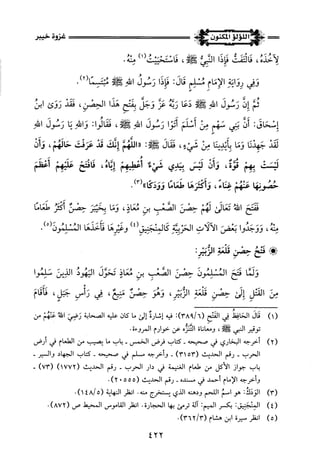 اللؤلؤ المكنون
غزوة خيبر
لِآخُذَهُ، فَالْتَفَتُّ فَإِذَا النَّبِيُّ ﷺ، فَاسْتَحْيَيْتُ(١) مِنْهُ.
وَفِي رِوَايَةِ الإِمَامِ مُسْلِمٍ قَالَ: فَإِذَا رَسُولُ اللهِ ﷺ مُتَبَسِّمًا(٢).
ثُمَّ إِنَّ رَسُولَ اللهِ ﷺ دَعَا رَبَّهُ عَزَّ وَجَلَّ بِفَتْحِ هَذَا الحِصْنِ، فَقَدْ رَوَى ابنُ
إِسْحَاقَ: أَنَّ بَنِي سَهْمٍ مِنْ أَسْلَمَ أَتَوْا رَسُولَ اللهِ ﷺ، فَقَالُوا: وَاللهِ يَا رَسُولَ اللهِ
لَقَدْ جَهِدْنَا وَمَا بِأَيْدِينَا مِنْ شَيْءٍ، فَقَالَ ﷺ: «اللَّهُمَّ إِنَّكَ قَدْ عَرَفْتَ حَالَهُمْ، وَأَنْ
لَيْسَتْ بِهِمْ قُوَّةٌ، وَأَنْ لَيْسَ بِيَدِي شَيْءٌ أُعْطِيهِمْ إِيَّاهُ، فَافْتَحْ عَلَيْهِمْ أَعْظَمَ
حُصُونِهَا عَنْهُمْ غِنَاءً، وَأَكْثَرَهَا طَعَامًا وَوَدَكًا»(٣).
فَفَتَحَ اللهُ تَعَالَى لَهُمْ حِصْنَ الصَّعْبِ بنِ مُعَاذٍ، وَمَا بِخَيْبَرَ حِصْنٌ أَكْثَرُ طَعَامًا
مِنْهُ، وَوَجَدُوا بَعْضَ الآلَاتِ الحَرْبِيَّةِ كَالمِنْجَنِيقِ(٤) وَغَيْرِهَا فَأَخَذَهَا المُسْلِمُونَ(٥).
فَتْحُ حِصْنِ قَلْعَةِ الزُّبَيْرِ:
وَلَمَّا فَتَحَ المُسْلِمُونَ حِصْنَ الصَّعْبِ بنِ مُعَاذٍ تَحَوَّلَ اليَهُودُ الذِينَ سَلِمُوا
مِنَ القَتْلِ إِلَى حِصْنِ قَلْعَةِ الزُّبَيْرِ، وَهُوَ حِصْنٌ مَنِيعٌ، فِي رَأْسِ جَبَلٍ، فَأَقَامَ
(١) قَالَ الحَافِظُ فِي الفَتْحِ (٣٨٩/٦): فيه إشارةٌ إلى ما كان عليه الصحابة رَضِيَ اللهُ عَنْهُم من
توقير النبي ﷺ، ومعاناة التَّنَزُّه عن خوارم المروءة.
(٢) أخرجه البخاري في صحيحه - كتاب فرض الخمس - باب ما يصيب من الطعام في أرض
الحرب - رقم الحديث (٣١٥٣) - وأخرجه مسلم في صحيحه - كتاب الجهاد والسير -
باب جواز الأكل من طعام الغنيمة في دار الحرب - رقم الحديث (١٧٧٢) (٧٣) -
وأخرجه الإمام أحمد في مسنده - رقم الحديث (٢٠٥٥٥).
(٣) الوَدَكُ: هو دسم اللحم ودهنه الذي يستخرج منه. انظر النهاية (١٤٨/٥).
(٤) المِنْجَنِيق: بكسر الميم: آلة ترمى بها الحجارة. انظر القاموس المحيط ص (٨٧٢).
(٥) انظر سيرة ابن هشام (٣٦٢/٣).
٤٢٢